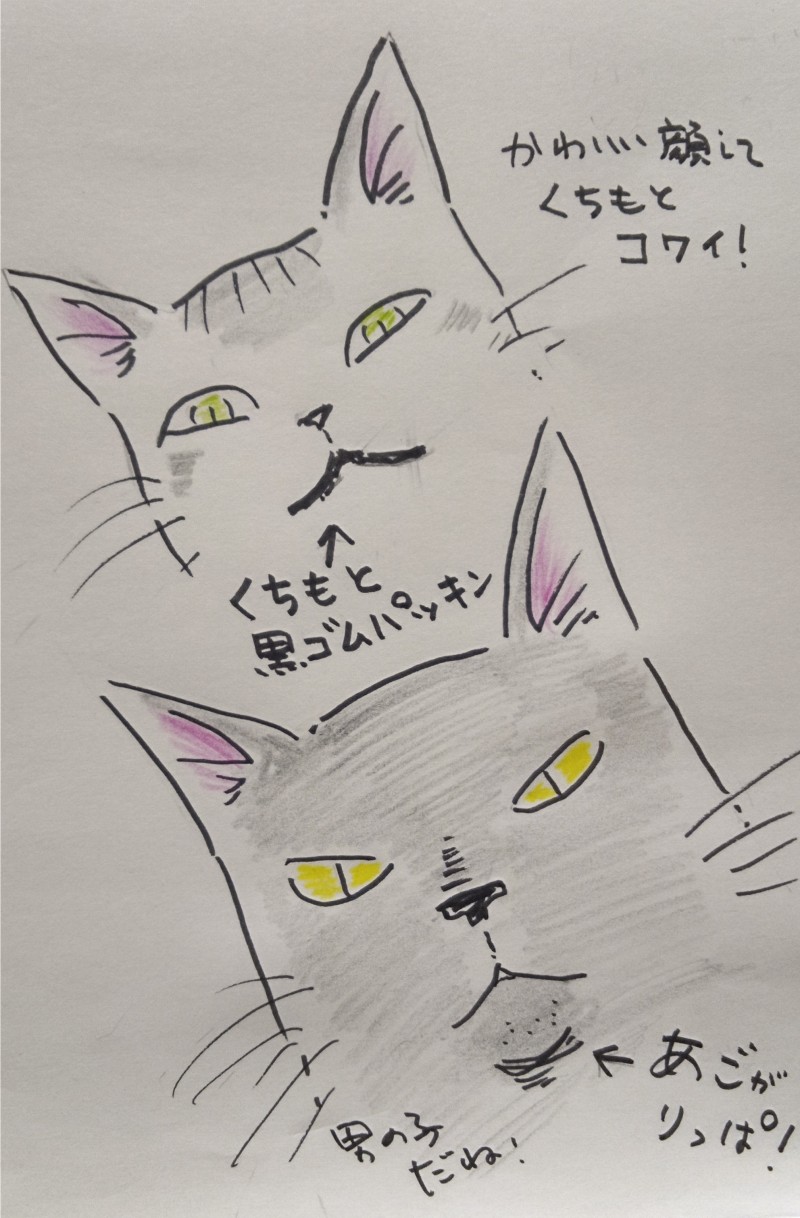 かわいい顔して
くちもと
コワイ!
くちもと
黒ゴムパッキン
あごが
りっぱ!
男の子
だね!